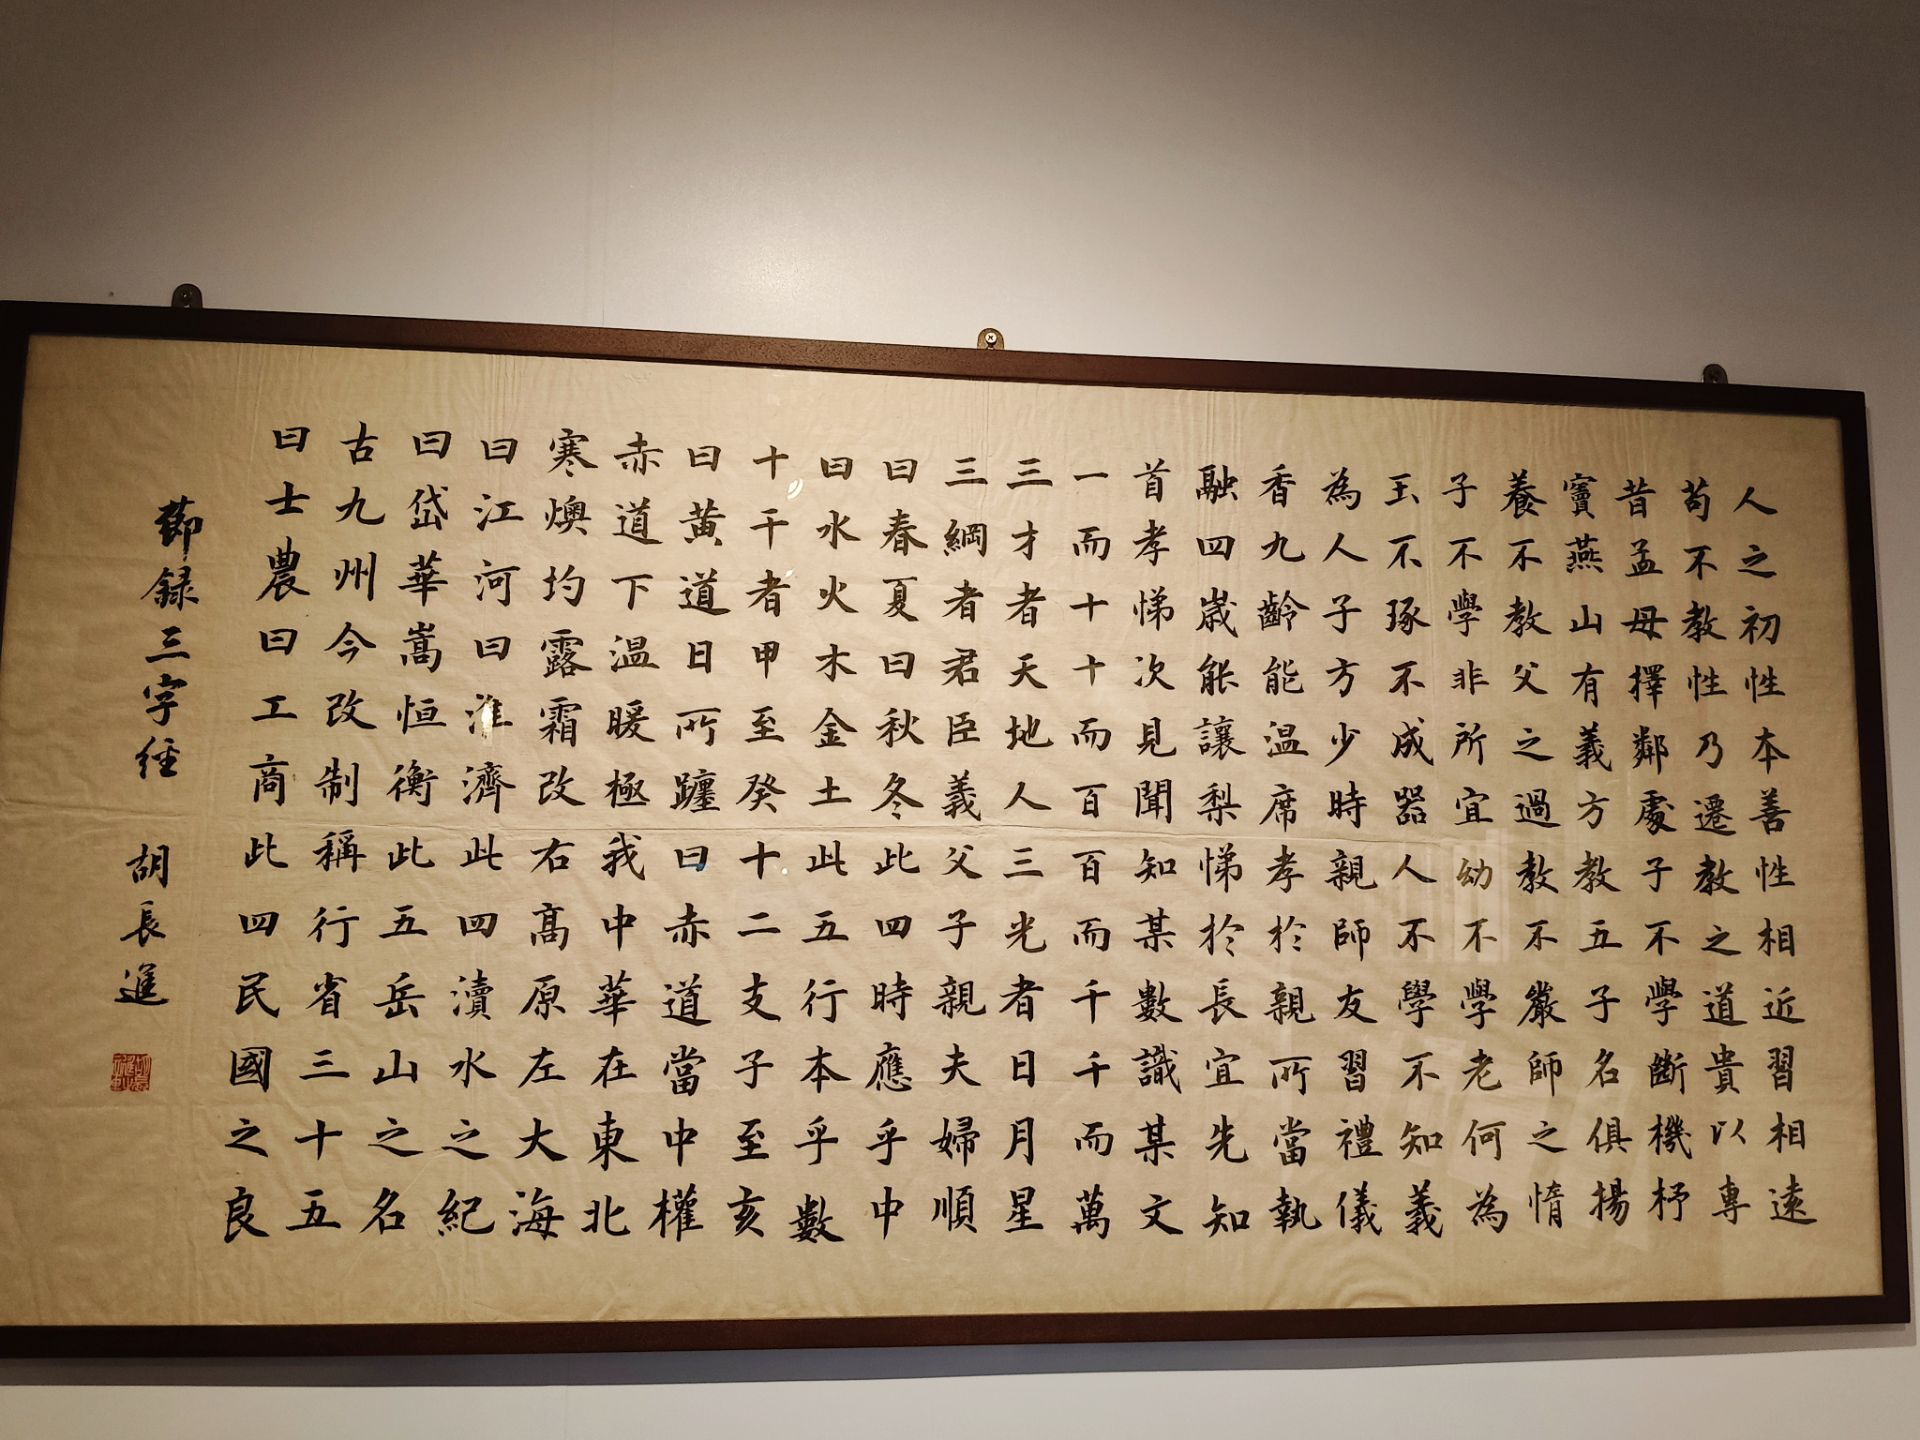 人之初性本善性相近習相遠
苟不教性乃遷教之道貴以專
昔孟母擇鄰處子不學斷機杼
竇燕山有義方教五子名俱揚
養不教父之過教不嚴師之惰
子不學非所宜幼不學老何為
玉不琢不成器人不學不知義
為人子方少時親師友習禮儀
香九齡能温席孝於親所當執
融四歲能讓梨悌於長宜先知
首孝悌次見聞知某數識某文
一而十十而百百而千千而萬
三才者天地人三光者日月星
三綱者君臣義父子親夫婦順
曰春夏曰秋冬此四時應乎中
曰水火木金土此五行本乎數
十干者甲至癸十二支子至亥
曰黄道日所躔曰赤道當中權
赤道下温暖極我中華在東北
寒燠均露霜改右高原左大海
曰江河曰淮濟此四瀆水之紀
曰岱華嵩恒衡此五岳山之名
古九州今改制稱行省三十五
曰士農曰工商此四民國之良
節録三字経 胡長進